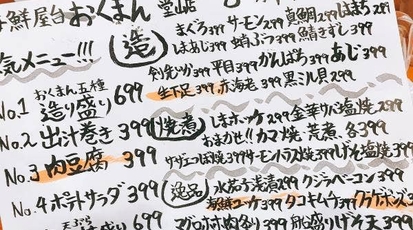 海鮮屋台おくまん 堂山店
人気メニュー!!!
No.1 おくまん五種 造り盛り 699
No.2 出汁巻き 399
No.3 肉豆腐 399
No.4 ポテトサラダ 399
699
造
まぐろ399 サーモン299 真鯛299 はまち299
蛸ぶつ399 鯖きずし399
剣先いか399 平目399 かんぱち399 あじ399
生下足399 赤海老399 黒ミル貝299
焼・煮
しまホッケ299 金華サバ塩焼299
おまかせ!! カマ焼・荒煮 各399
サザエつぼ焼399 サーモンハラス焼399 げそ塩焼399
逸品
水茄子浅漬299 クジラベーコン399
タコキムチ399
げそ天399